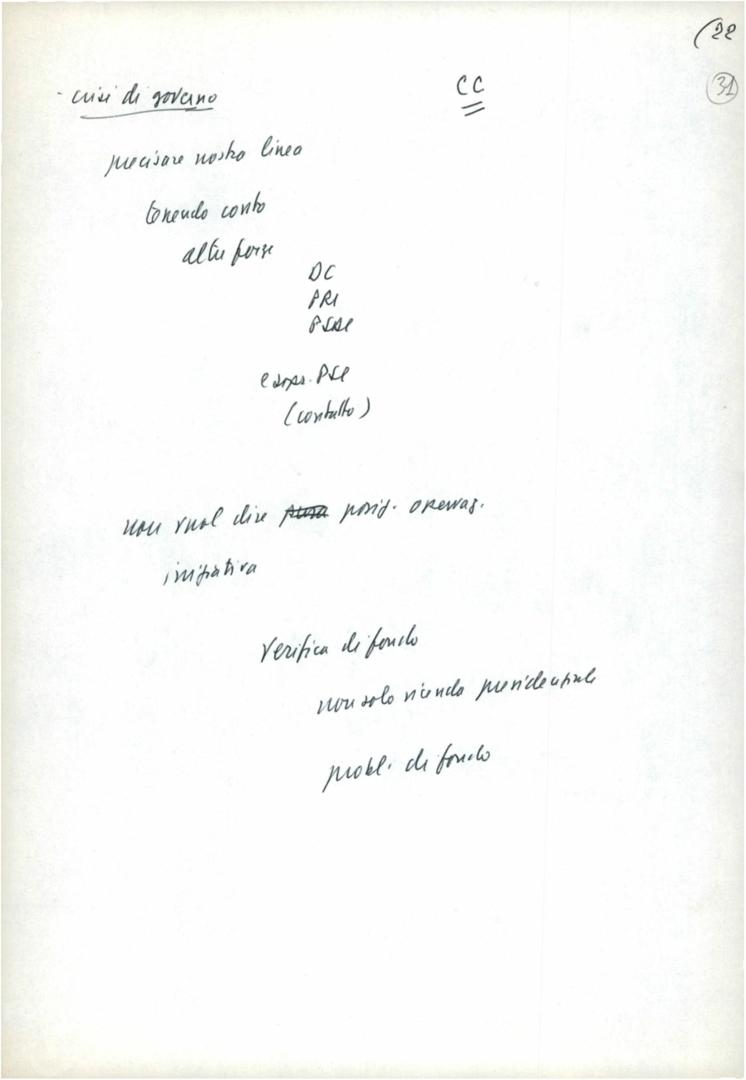 (22
31
- crisi di governo
CC
precisare nostra linea
tenendo conto
altre forze
DC
PRI
PSDI
e sopr. PSI
(contatto)
non vuol dire pura posiz. osservaz.
iniziativa
Verifica di fondo
non solo vicenda presidenziale
probl. di fondo